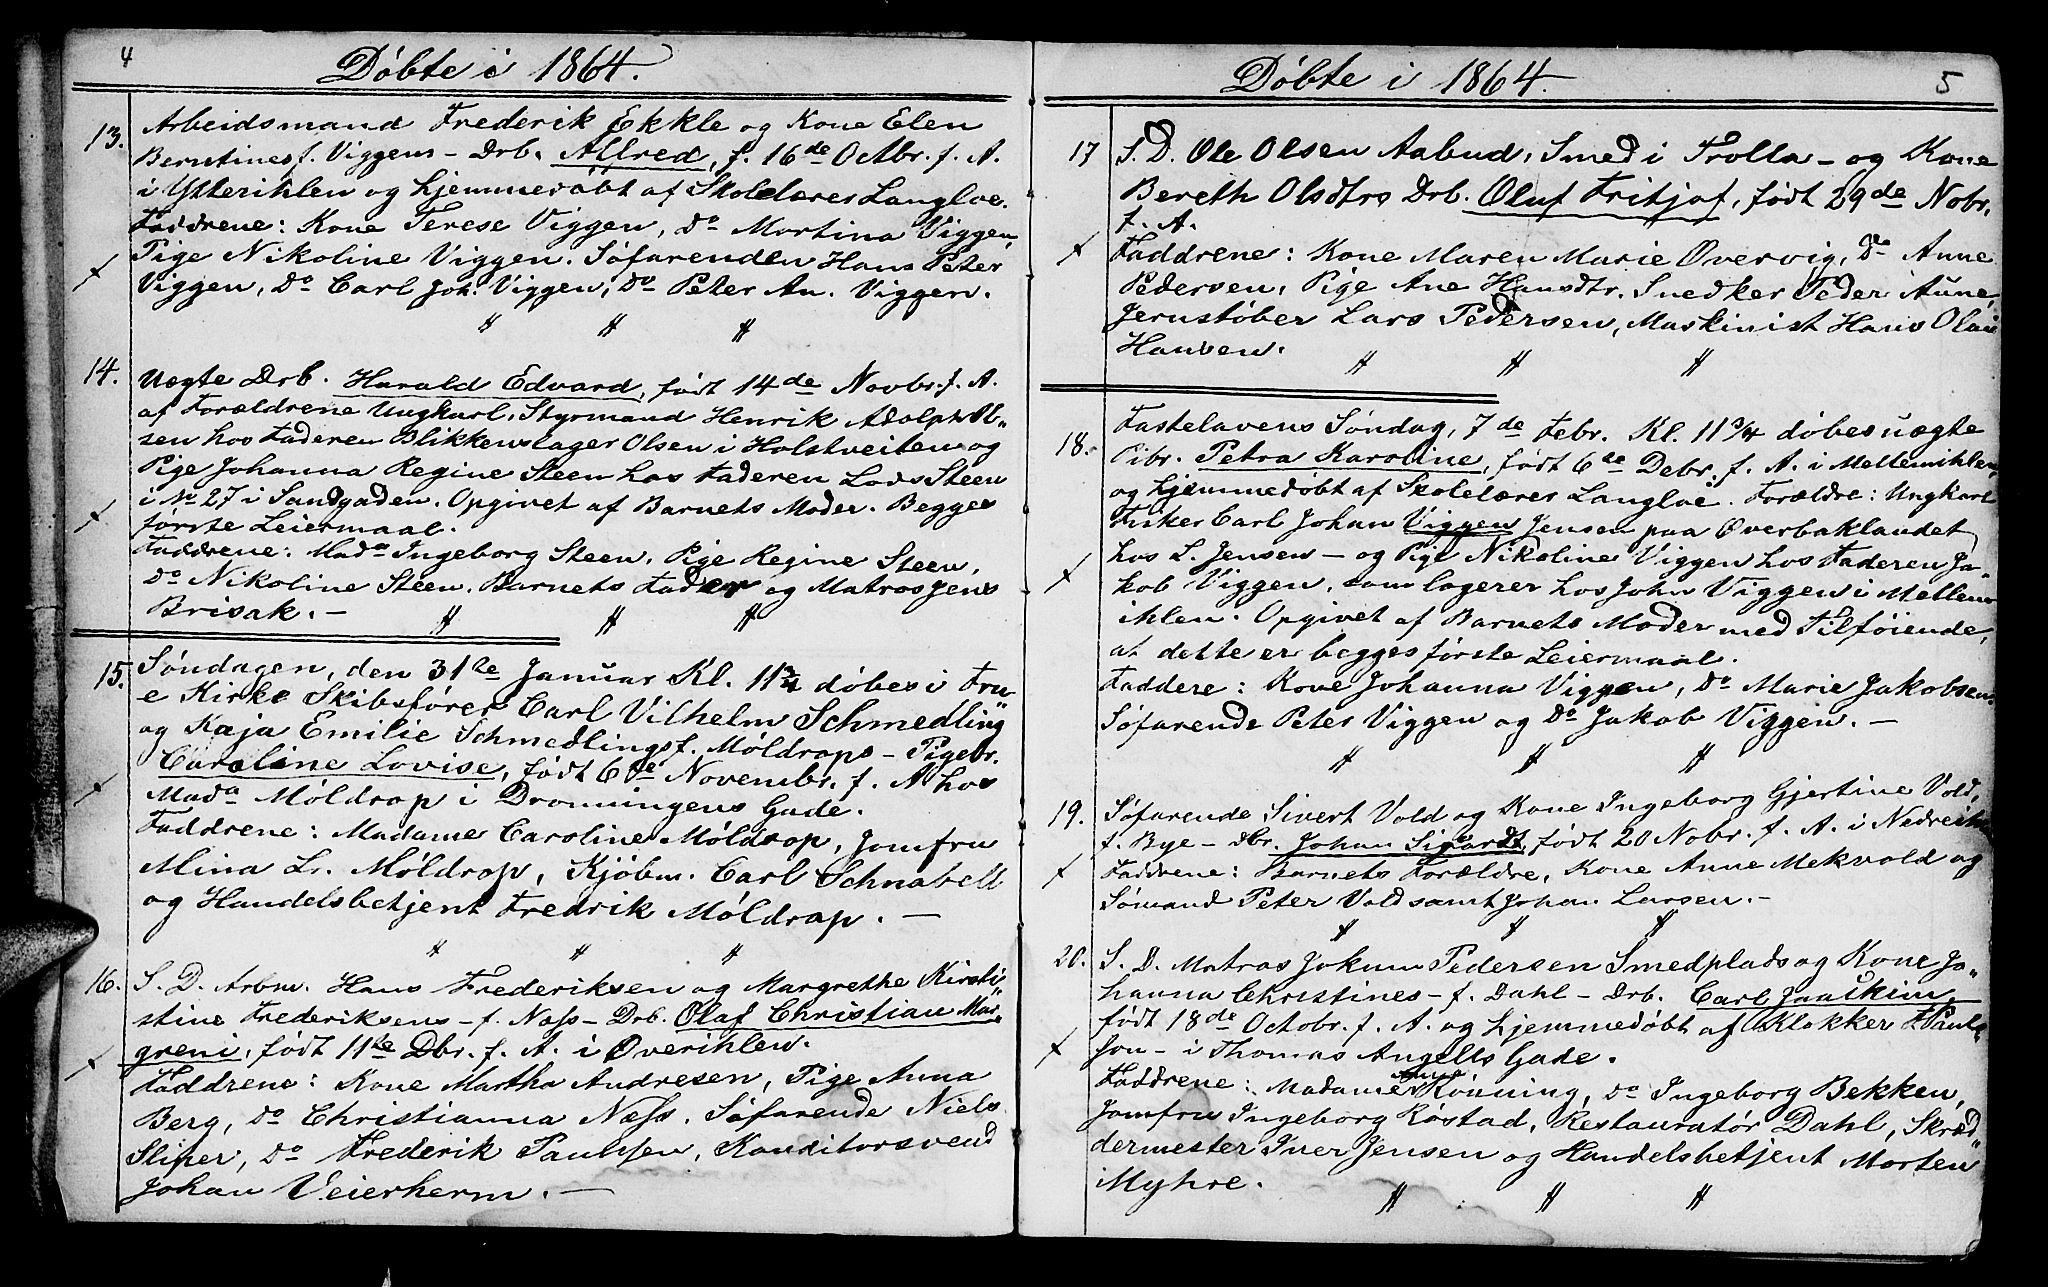 4
Döbte i 1864.
13. Arbeidsmand Frederik Ekkle og Kone Elen
Berntines f. Viggens - Drb. Alfred, f. 16de Octbr. f. A.
i Ytterihlen og hjemmedöbt af Skolelærer Langloe.
Faddrene: Kone Terese Viggen, Do Martina Viggen,
Pige Nikoline Viggen. Söfarenden Hans Peter
Viggen, Do Carl Joh. Viggen, Do Peter An. Viggen.
" " "
14. Uægte Drb. Harald Edvard, födt 14de Novbr. f. A.
af Forældrene Ungkarl, Styrmand Henrik Adolph Ol-
sen hos Faderen Blikkenslager Olsen i Holstveiten og
Pige Johanna Regine Steen hos Faderen Lods Steen
i No 27 i Sandgaden. Opgivet af Barnets Moder. Begges
förste Leiermaal.
Faddrene: Mada Ingeborg Steen, Pige Regine Steen,
Do Nikoline Steen. Barnets Fader og Matros Jens
Brisak. -
" " "
15. Söndagen, den 31te Januar Kl. 11 3/4 döbes i Fru
e Kirke Skibsförer Carl Vilhelm Schmedling
og Kaja Emilie Schmedlings f. Möldrops - Pigebr.
Caroline Lovise, födt 6te Novembr. f. A hos
Mada Möldrop i Dronningens Gade.
Faddrene: Madame Caroline Möldrop, Jomfru
Mina Lr. Möldrop, Kjöbm. Carl Schnabell
og Handelsbetjent Fredrik Möldrop. -
" " "
16. S. D. Arbm. Hans Frederiksen og Margrethe Kirsti-
stine Frederiksens - f. Næss - Drb. Olaf Christian Mar-
greni, födt 11te Dbr. f. A. i Överihlen.
Faddrene: Kone Martha Andresen, Pige Anna
Berg, Do Christianna Næss. Söfarende Niels
Sliper, Do Frederik Paulsen, Konditorsvend
Johan Veierherm. -
Döbte i 1864.
5
17 S. D. Ole Olsen Aabud, Smed i Trolla - og Kone
Bereth Olsdtrs Drb. Oluf Fritjof, födt 29de Nobr.
f. A.
Faddrene: Kone Maren Marie Övervig, Do Anne
Pedersen, Pige Ane Hansdtr. Snedker Peder Aune,
Jernstöber Lars Pedersen, Maskinist Hans Olai
Hansen.
" " "
18. Fastelavens Söndag, 7de Febr. Kl. 11 3/4 döbes uægte
Pibr. Petra Karoline, födt 6te Debr. f. A. i Mellemihlen
og hjemmedöbt af Skolelærer Langloe. Forældre: Ungkarl
Fisker Carl Johan Viggen Jensen paa Överbaklandet
hos L. Jensen - og Pige Nikoline Viggen hos Faderen Ja-
kob Viggen, som logerer hos John Viggen i Mellem-
ihlen. Opgivet af Barnets Moder med Tilföiende,
at dette er begges förste Leiermaal.
Faddere: Kone Johanna Viggen, Do Marie Jakobsen.
Söfarende Peter Viggen og Do Jakob Viggen. -
" " "
19. Söfarende Sivert Vold og Kone Ingeborg Gjertine Vold,
f. Bye - Dbr. Johan Sigardt, födt 20 Nobr. f. A. i Nedreihlen
Faddrene: Barnets Forældre, Kone Anne Mekvold og
Sömand Peter Vold samt Johan Larsen. -
" " "
20. S. D. Matros Jokum Pedersen Smedplads og Kone Jo-
hanna Christines - f. Dahl - Drb. Carl Joackim,
födt 18de Octobr. f. A. og hjemmedöbt af Klokker F. Paul-
son - i Thomas Angells Gade.
Faddrene: Madame Rönning, Do Ingeborg Bekken,
Jomfru Ingeborg Röstad, Restauratör Dahl, Skræd-
dermester Iver Jensen og Handelsbetjent Morten
Myhre.
" " "